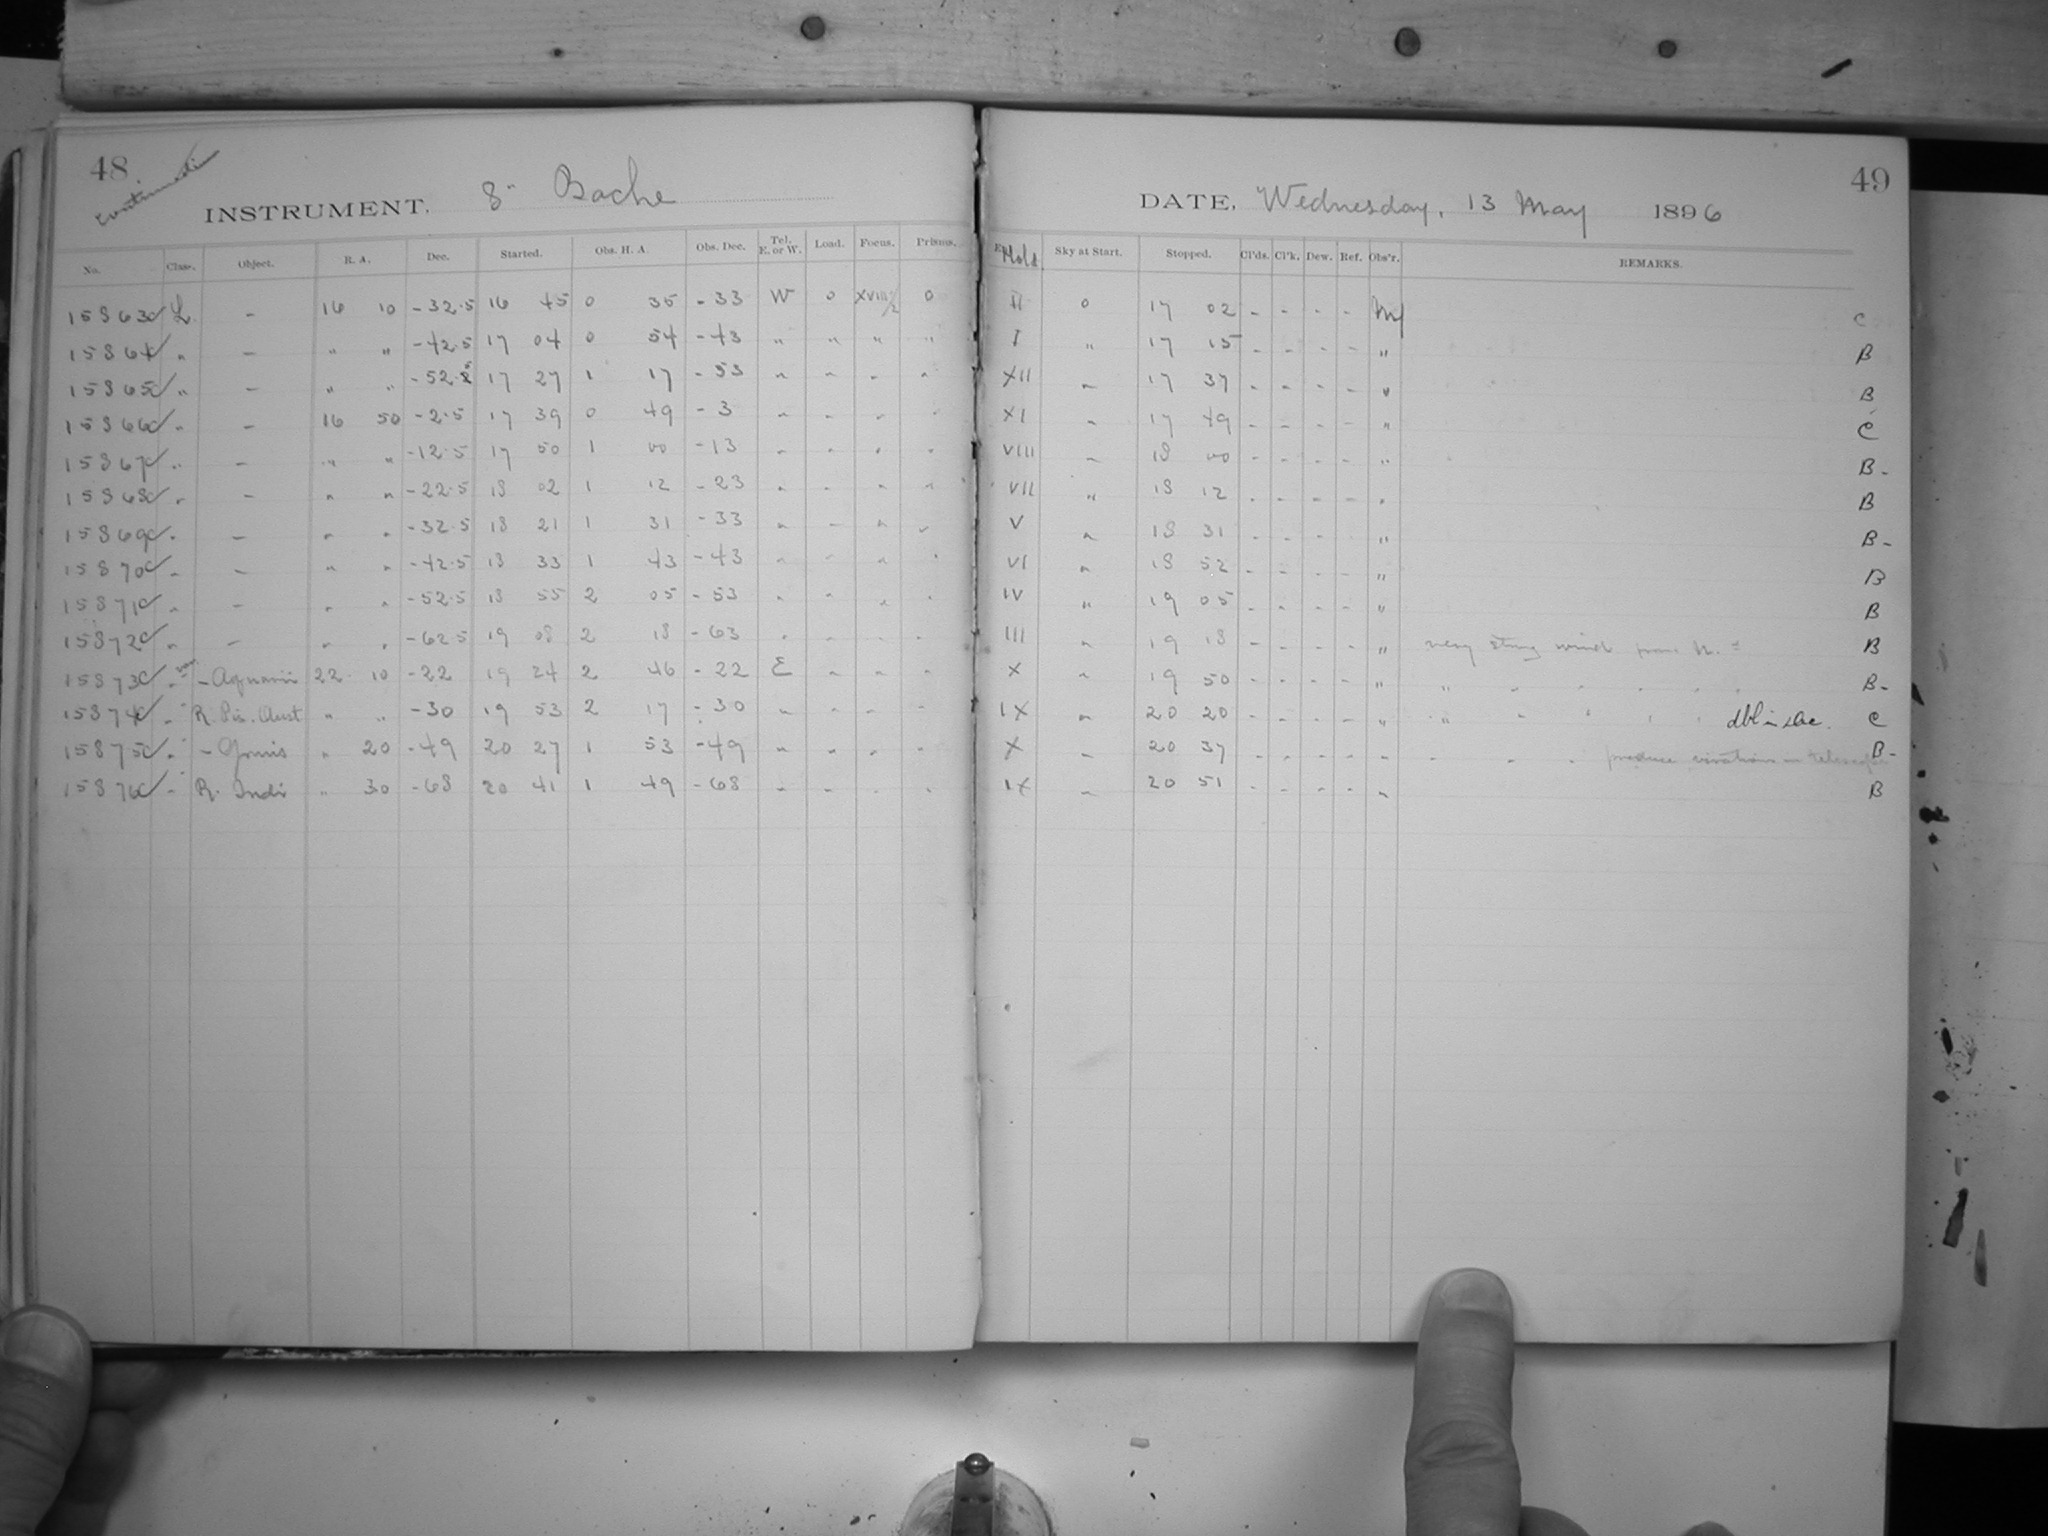 48
continued
INSTRUMENT. 8" Bache
No. Class. Object. R. A. Dec. Started. Obs. H. A. Obs. Dec. Tel. E. or W. Load. Focus. Prisms.
15863c L. - 16 10 -32.5 16 45 0 35 -33 W 0 XVIII½ 0
15864c " - " " -42.5 17 04 0 54 -43 " " " "
15865c " - " " -52.5 17 27 1 17 -53 " " " "
15866c " - 16 50 -2.5 17 39 0 49 -3 " " " "
15867c " - " " -12.5 17 50 1 00 -13 " " " "
15868c " - " " -22.5 18 02 1 12 -23 " " " "
15869c " - " " -32.5 18 21 1 31 -33 " " " "
15870c " - " " -42.5 18 33 1 43 -43 " " " "
15871c " - " " -52.5 18 55 2 05 -53 " " " "
15872c " - " " -62.5 19 08 2 18 -63 " " " "
15873c " - Aquarii 22 10 -22 19 24 2 46 -22 E " " "
15874c " R. Pis. Aust " " -30 19 53 2 17 -30 " " " "
15875c " - Gruis " 20 -49 20 27 1 53 -49 " " " "
15876c " R. Indi " 30 -68 20 41 1 49 -68 " " " "
49
DATE, Wednesday, 13 May 1896
Hold Sky at Start. Stopped. Cl'ds. Cl'k. Dew. Ref. Obs'r. REMARKS.
II 0 17 02 - - - - C
I " 17 15 - - - - " B
XII " 17 37 - - - - " B
XI " 17 49 - - - - " C
VIII " 18 00 - - - - " B-
VII " 18 12 - - - - " B
V " 18 31 - - - - " B-
VI " 18 52 - - - - " B
IV " 19 05 - - - - " B
III " 19 18 - - - - " very strong wind from N. B
X " 19 50 - - - - " " " " " " B-
IX " 20 20 - - - - " " " " " " dbl in dec. C
X " 20 37 - - - - " " " " produce vibrations in telescope B-
IX " 20 51 - - - - " B